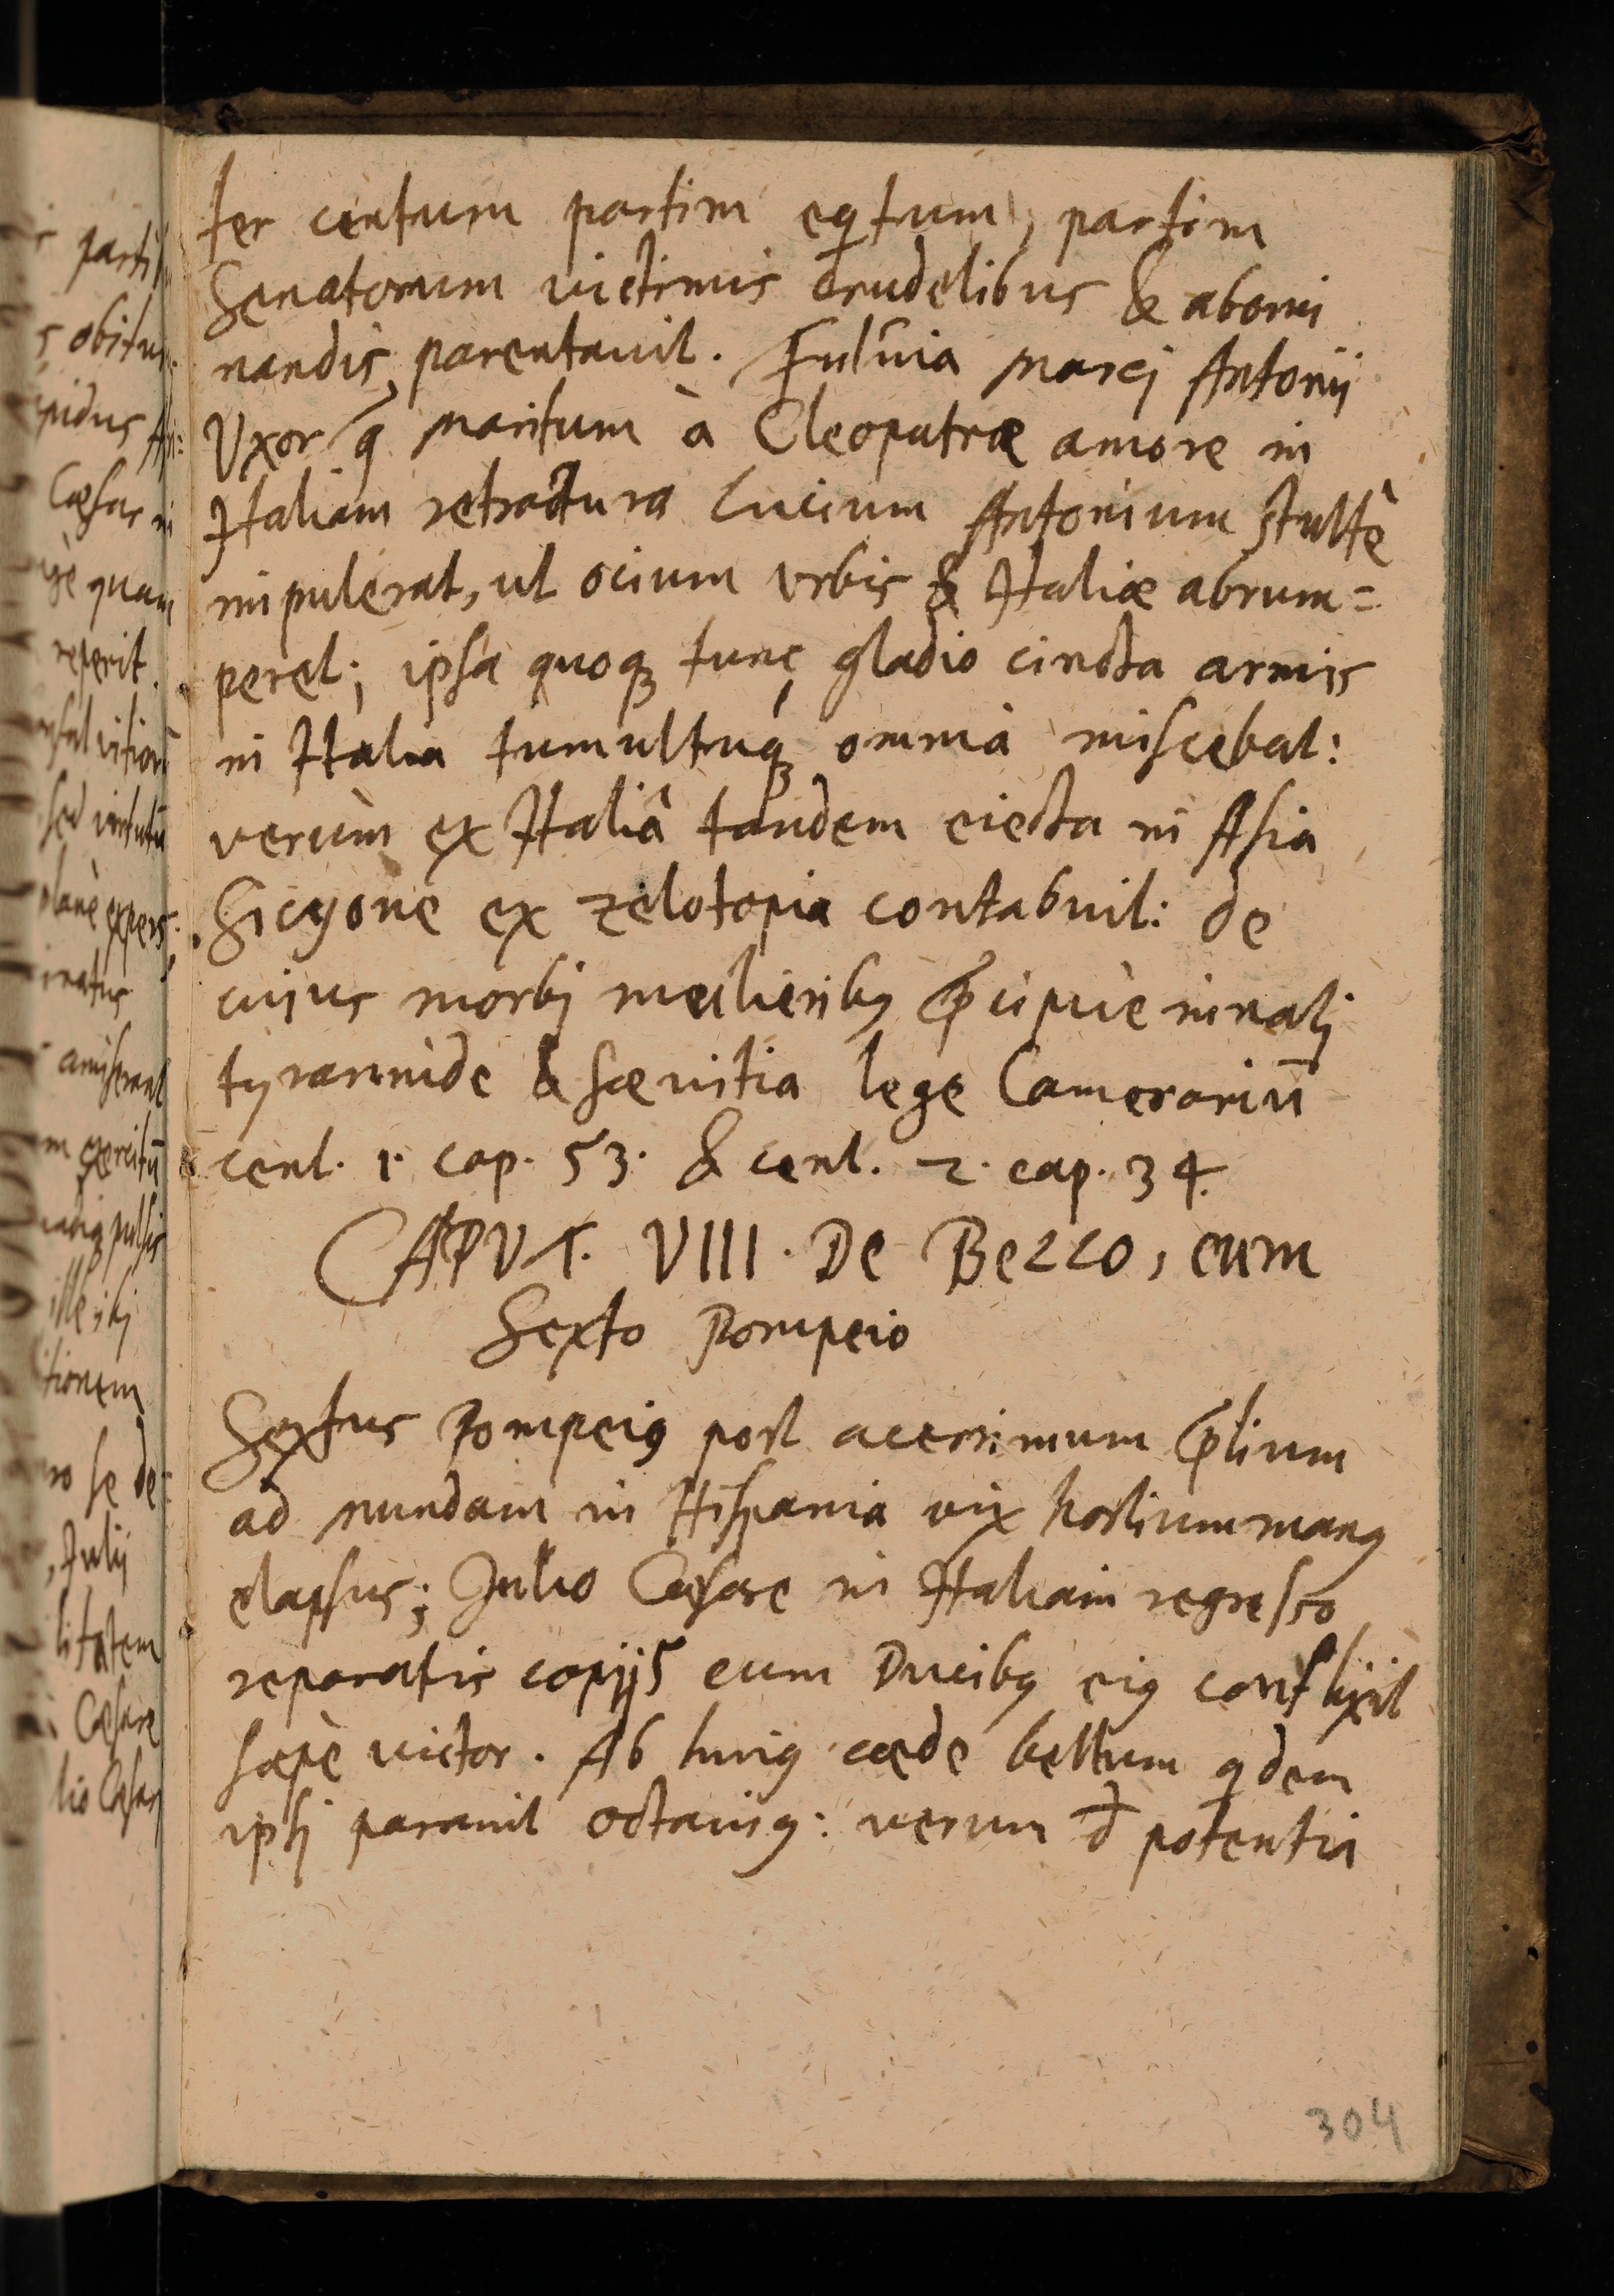 ter centum partim eqtum, partim
Senatorum victimis crudelibus & abomi
nandis parentavit. Fulvia Marcj Antonij
Vxor q Maritum à Cleopatræ amore in
Italiam retractura Lucium Antonium stultè
impulerat, ut ocium vrbis & Italiæ abrum=
peret; ipsa quoq tunc gladio cincta armis
in Italia tumultuq omnia miscebat:
verùm ex Italiâ tandem eiecta in Asia
Sicyone ex zelotopia contabuit: de
cujus morbj mulierib9 p̄cipuè innatj
tyrannide & sævitia lege Camerariū
cent. 1. cap. 53. & cent. 2. cap. 34.
CAPVT. VIII. De BeLLO, cum
Sexto Pompeio
Sextus Pompei9 post acerrimum p̄lium
ad mundam in Hispania vix hostium man9
elapsus; Julio Cæsare in Italiam regresso
reparatis copijs cum Ducib9 ei9 conflixit
sæpè victor. Ab hui9 cæde bellum qdem
ipsj paravit octavi9: verum potentia
304
parti
obitum
epidus Afri=
Cæsar in
quam
reperit.
sed virtutū
planè expers.
amiserant
exercitū
pulsis
ille ibj
itionem
se de=
, Julij
Cæsare
lio Cæsar